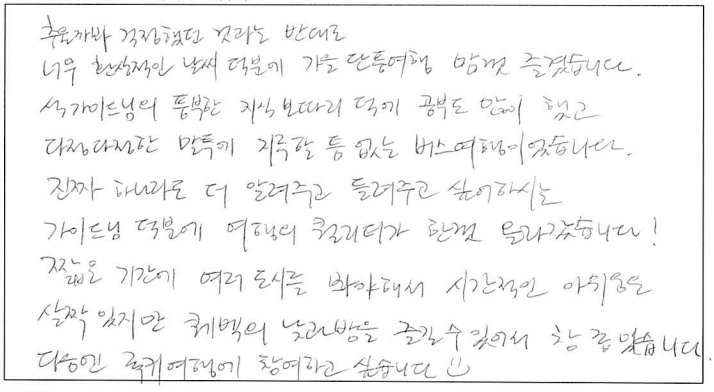 추울까봐 걱정했던 것과는 반대로
너무 환상적인 날씨 덕분에 가을 단풍여행 맘껏 즐겼습니다.
석가이드님의 풍부한 지식 보따리 덕에 공부도 많이 했고
다정다정한 말투에 지루할 틈 없는 버스여행이었습니다.
진짜 하나라도 더 알려주고 들려주고 싶어하시는
가이드님 덕분에 여행의 퀄리티가 한껏 올라갔습니다!
짧은 기간에 여러 도시를 봐야해서 시간적인 아쉬움은
살짝 있지만 퀘벡의 낮과밤을 즐길 수 있어서 참 좋았습니다
다음엔 록키여행에 참여하고 싶습니다